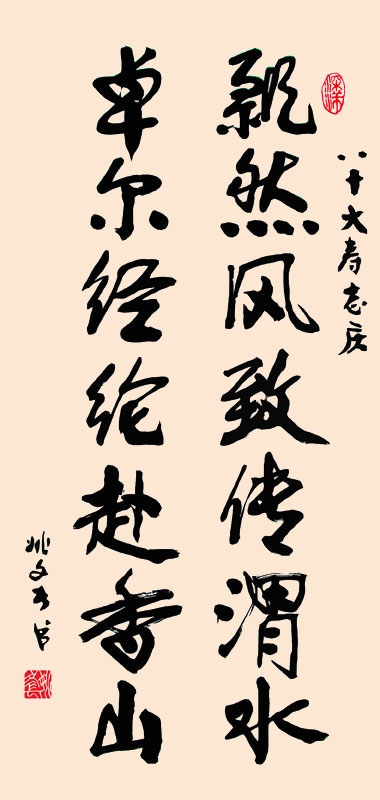 八十大寿志庆
飘然风致传渭水
卓尔经纶赴香山
姚文